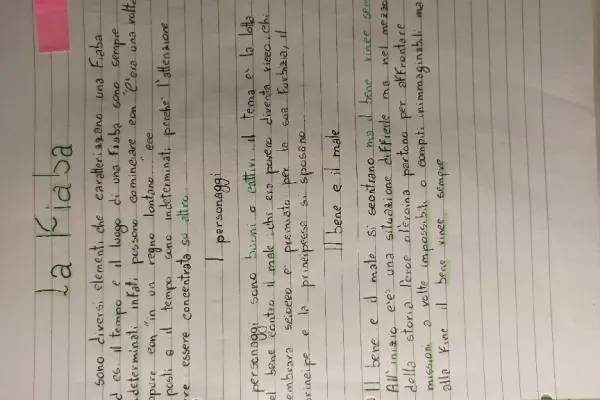 La Fiaba
sono diversi elementi che caratterizzano una Fiaba
d es il tempo e il luogo di una Fiaba sono sempre
determinati infati possono cominciare con "C'era una volta
ppure con "in un regno lontano" ecc
posti e il tempo sono indeterminati perchè l'attenzione
re essere concentrata su altro.
I personaggi
personaggi sono buoni o cattivi il tema e' la lotta
el bene contro il male. chi era povero diventa ricco, chi
embrava sciocco e' premiato per la sua furbizia, il
principe e la principessa si sposano...
Il bene e il male
Il bene e il male si scontrano ma il bene vince sem
All' inizio c'e' una situazione difficile ma nel mezzo
della storia l'eroe o l'eroina partono per affrontare
missioni a volte impossibili o compiti inimmaginabili ma
alla fine il bene vince sempre